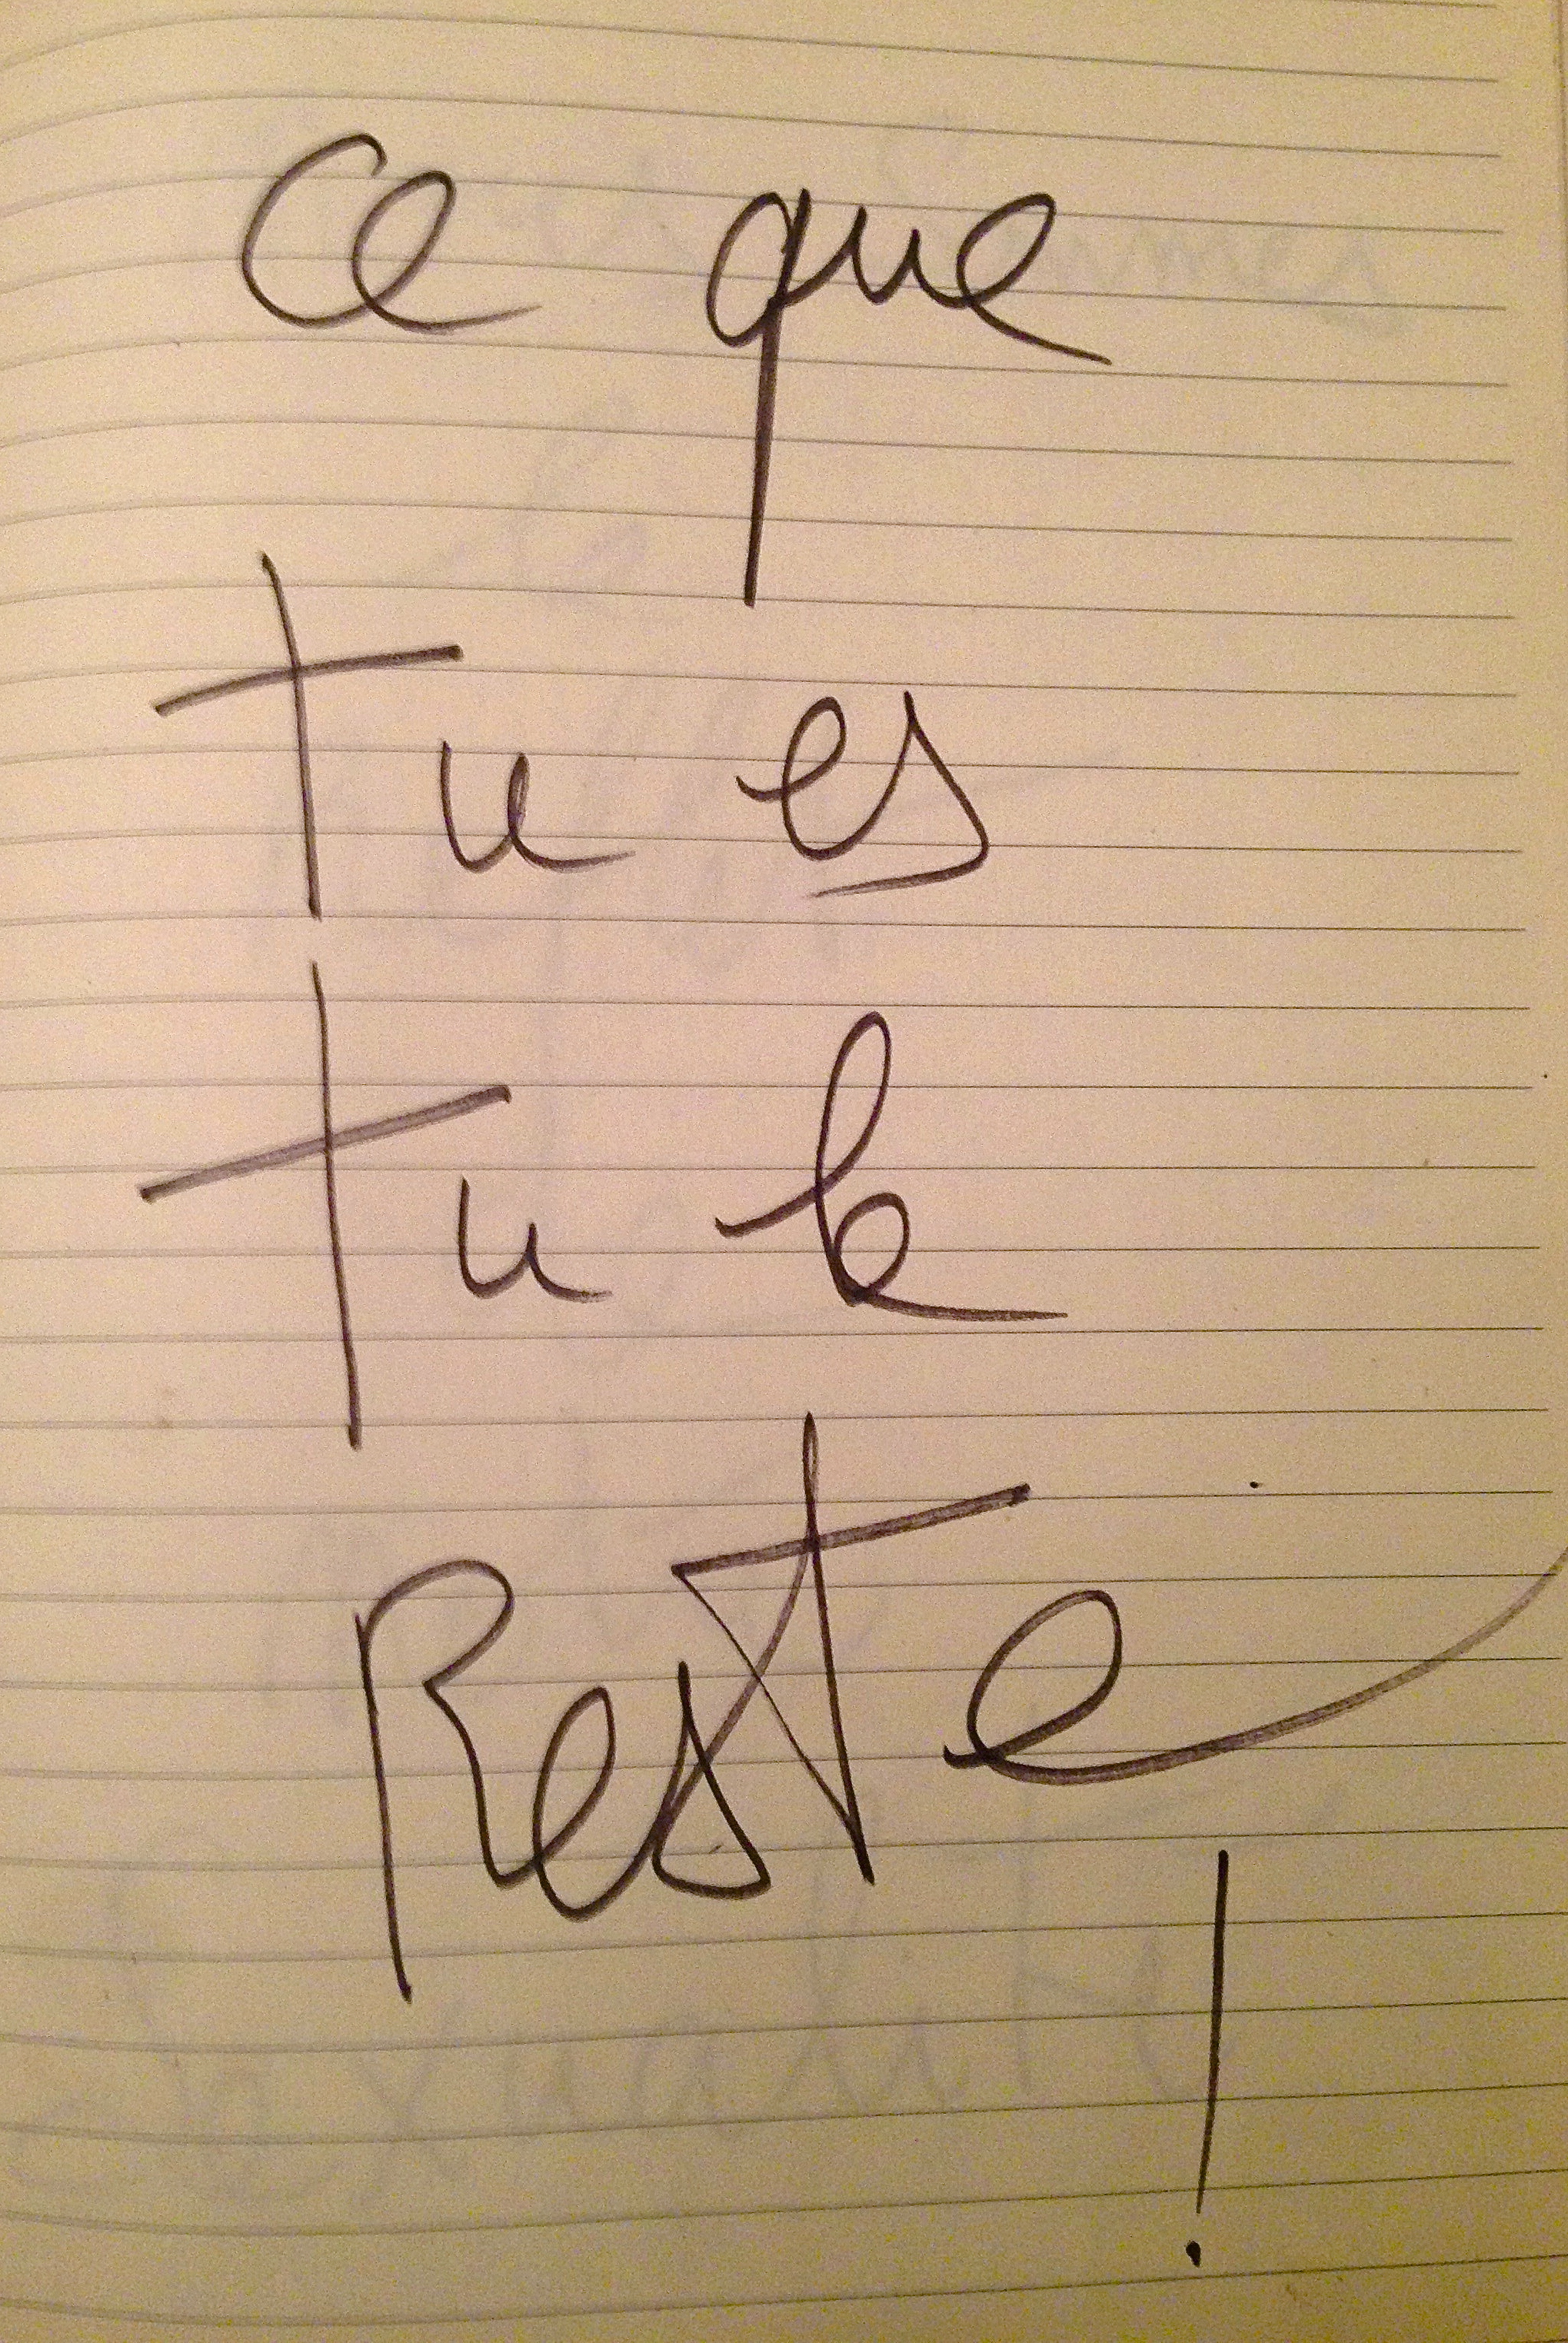 ce que
tu es
tu le
Reste
!